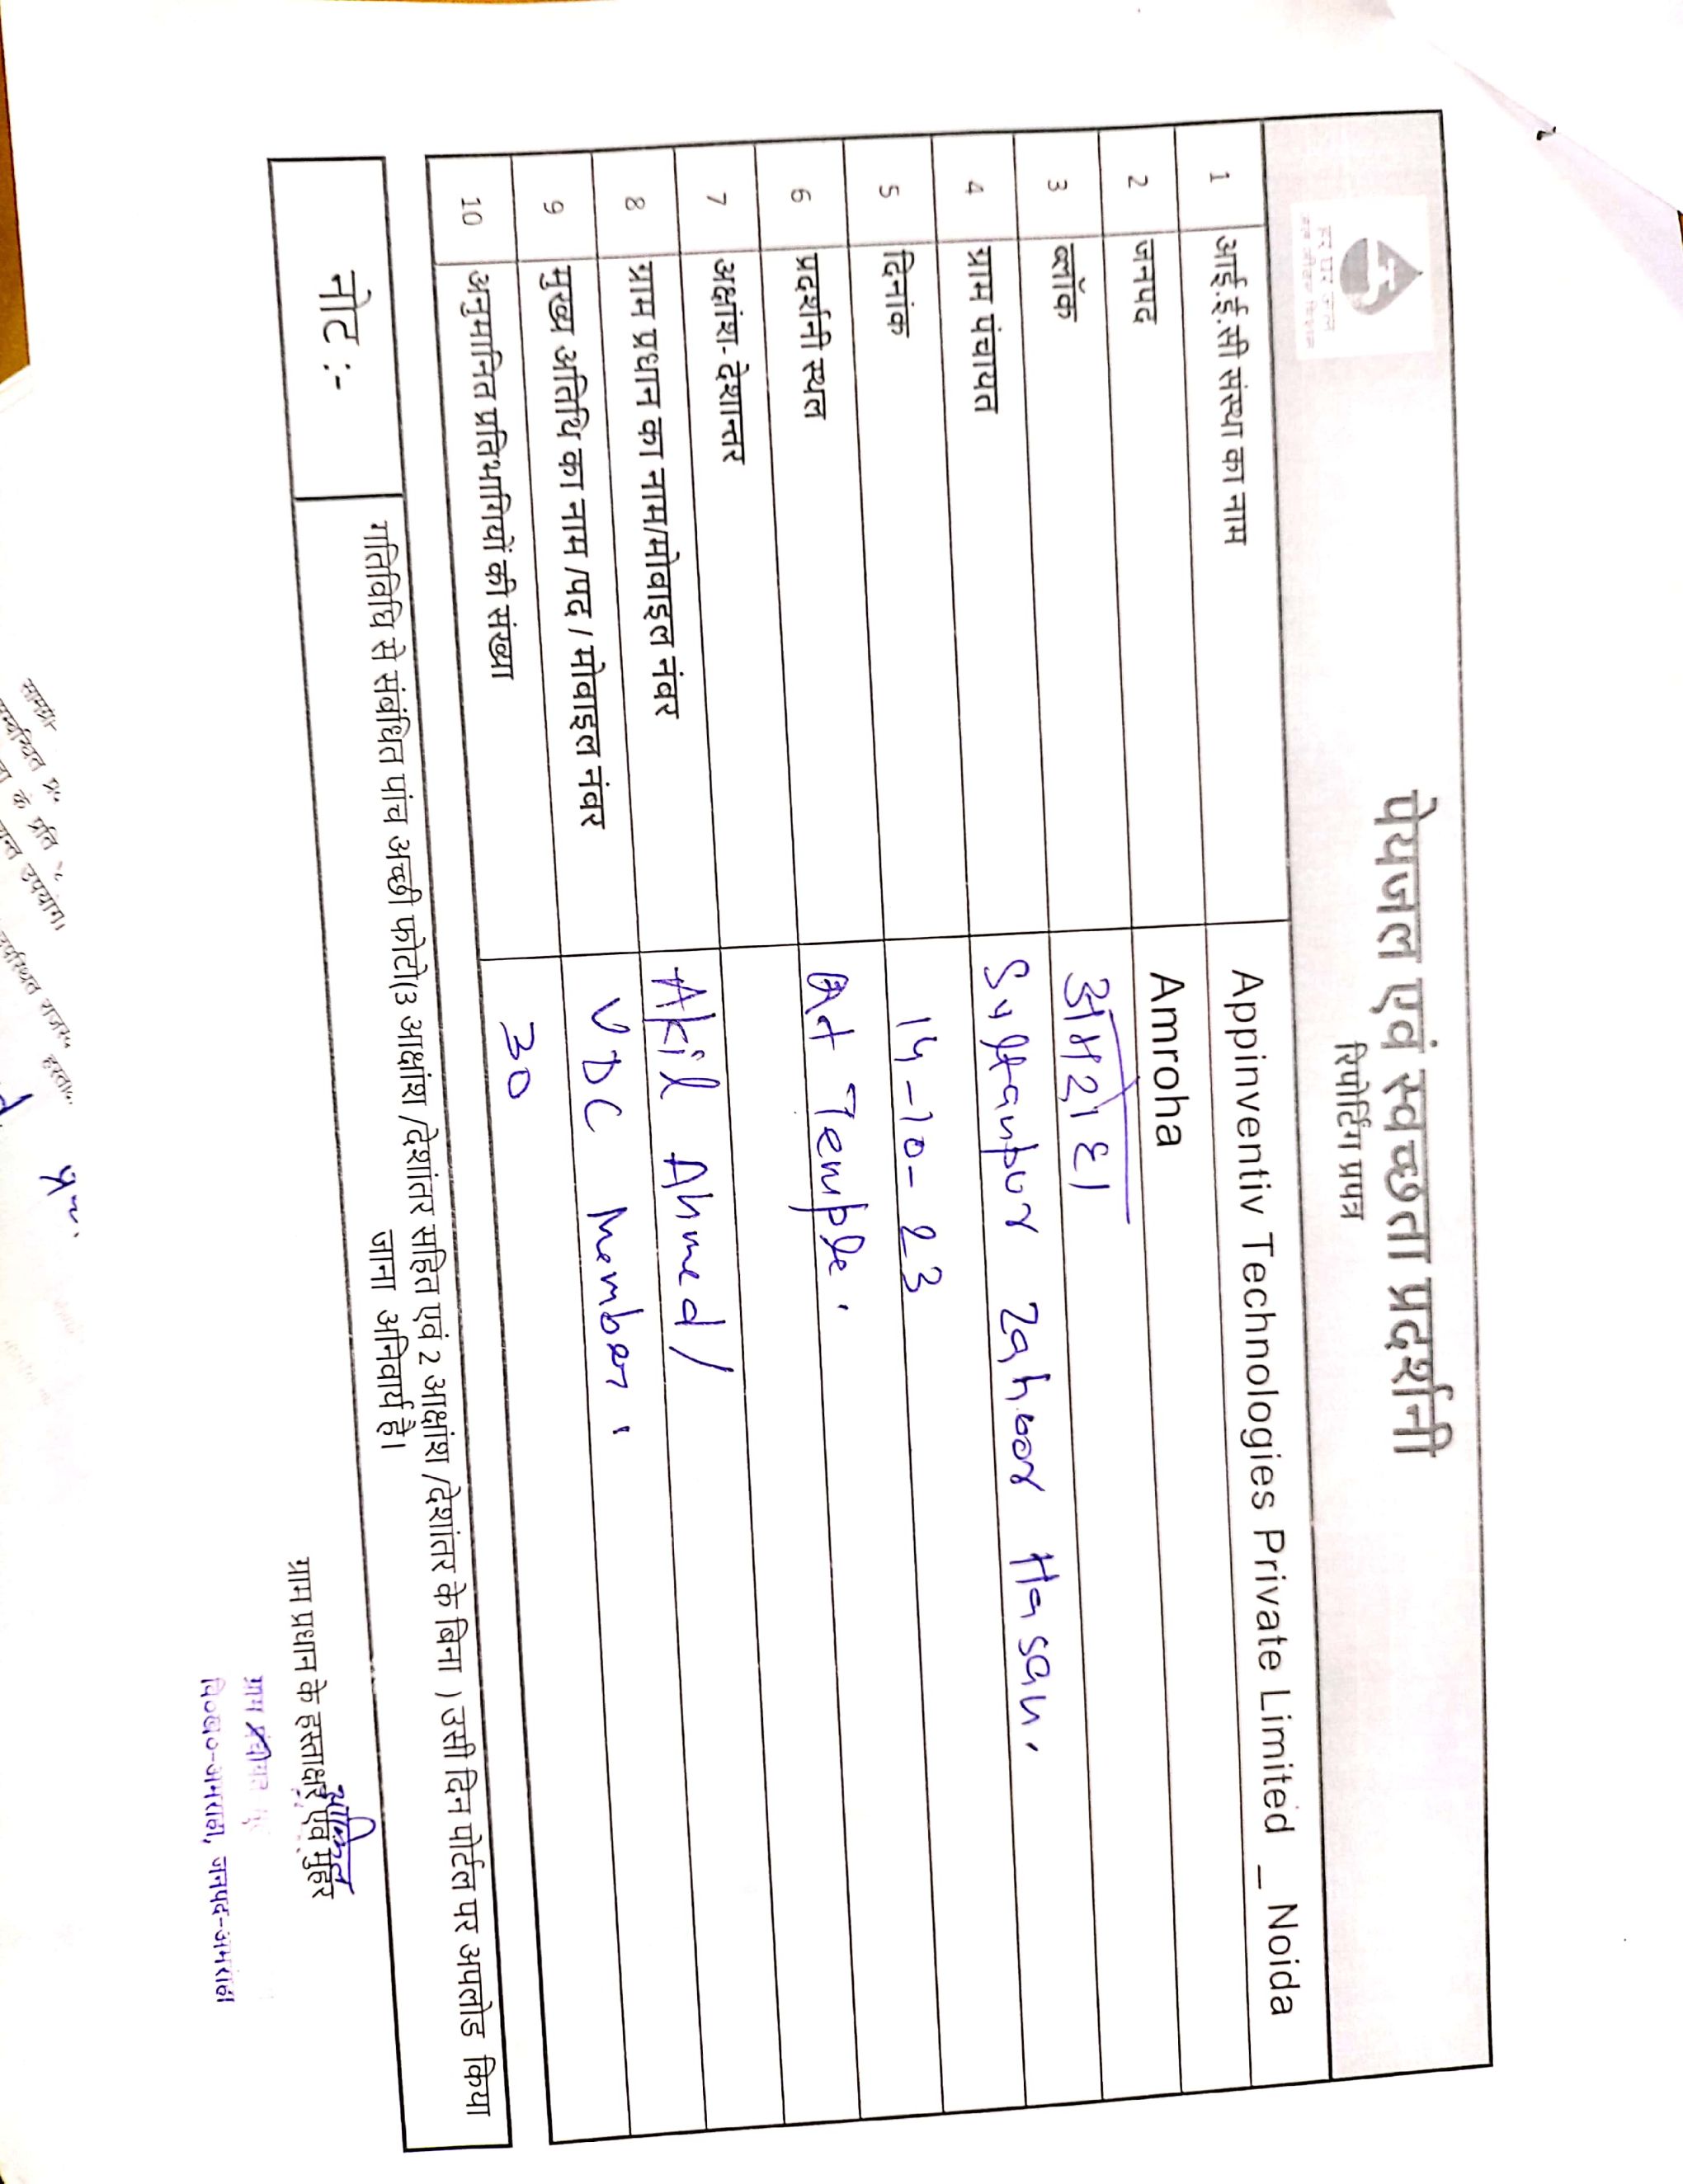 पेयजल एवं स्वच्छता प्रदर्शनी
रिपोर्टिंग प्रपत्र
हर घर जल
1 आई.ई.सी संस्था का नाम Appinventiv Technologies Private Limited _ Noida
2 जनपद Amroha
3 ब्लॉक अमरोहा
4 ग्राम पंचायत Sultanpur Zahoor Hasan.
5 दिनांक 14-10-23
6 प्रदर्शनी स्थल At Temple.
7 अक्षांश- देशान्तर
8 ग्राम प्रधान का नाम/मोबाइल नंबर Akil Ahmed/
9 मुख्य अतिथि का नाम /पद / मोबाइल नंबर VDC Member.
10 अनुमानित प्रतिभागियों की संख्या 30
नोट :-
गतिविधि से संबंधित पांच अच्छी फोटो(3 आक्षांश /देशांतर सहित एवं 2 आक्षांश /देशांतर के बिना ) उसी दिन पोर्टल पर अपलोड किया
जाना अनिवार्य है।
आकिल
ग्राम प्रधान के हस्ताक्षर एवं मुहर
ग्राम
वि०ख०-अमरोहा, जनपद-अमरोहा
के प्रति